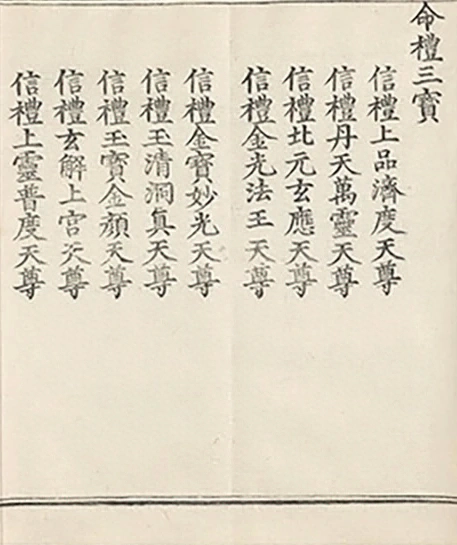 命禮三寶
信禮上品濟度天尊
信禮丹天萬靈天尊
信禮北元玄應天尊
信禮金光法王天尊
信禮金寶妙光天尊
信禮玉清洞真天尊
信禮玉寶金顏天尊
信禮玄解上宮天尊
信禮上靈普度天尊